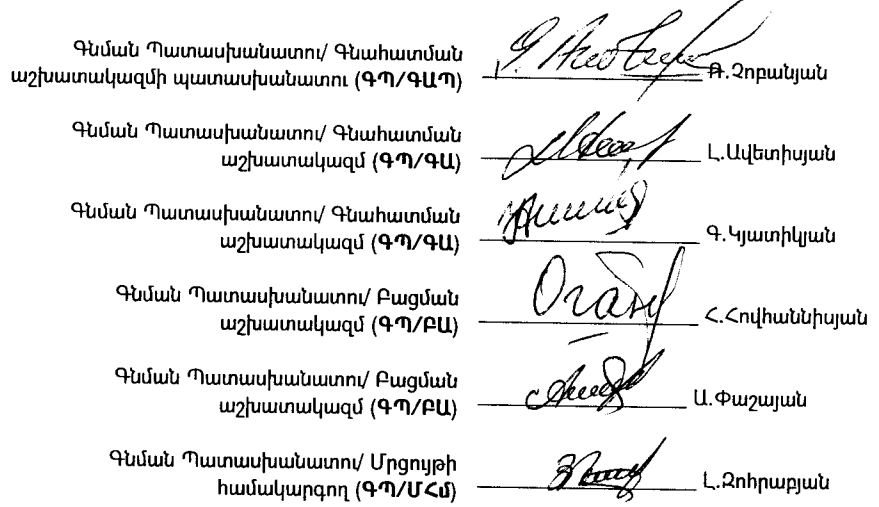 Գնման Պատասխանատու/ Գնահատման
աշխատակազմի պատասխանատու (ԳՊ/ԳԱՊ) Ռ.Չոբանյան
Գնման Պատասխանատու/ Գնահատման
աշխատակազմ (ԳՊ/ԳԱ) Լ.Ավետիսյան
Գնման Պատասխանատու/ Գնահատման
աշխատակազմ (ԳՊ/ԳԱ) Գ.Կյատիկյան
Գնման Պատասխանատու/ Բացման
աշխատակազմ (ԳՊ/ԲԱ) Հ.Հովհաննիսյան
Գնման Պատասխանատու/ Բացման
աշխատակազմ (ԳՊ/ԲԱ) Ա.Փաշայան
Գնման Պատասխանատու/ Մրցույթի
համակարգող (ԳՊ/ՄՀմ) Լ.Զոհրաբյան